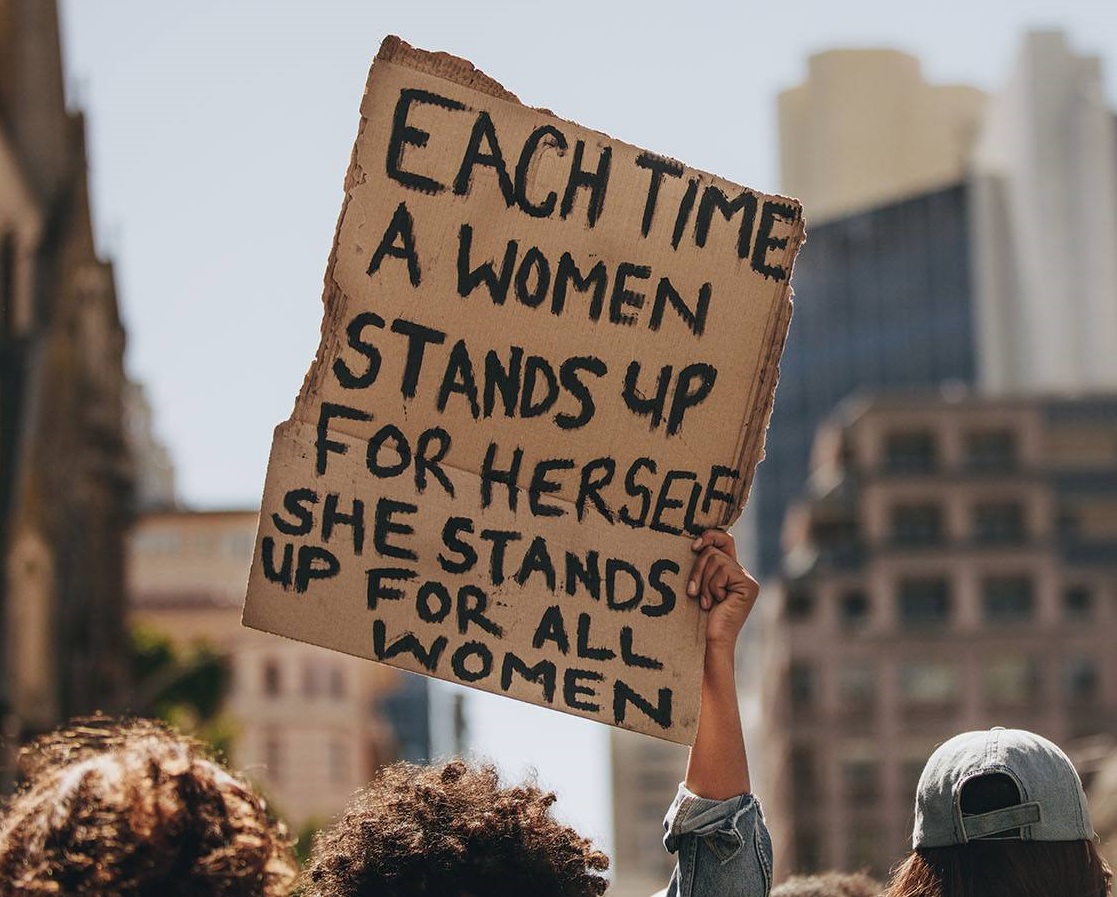 EACH TIME
A WOMEN
STANDS UP
FOR HERSELF
SHE STANDS
UP FOR ALL
WOMEN